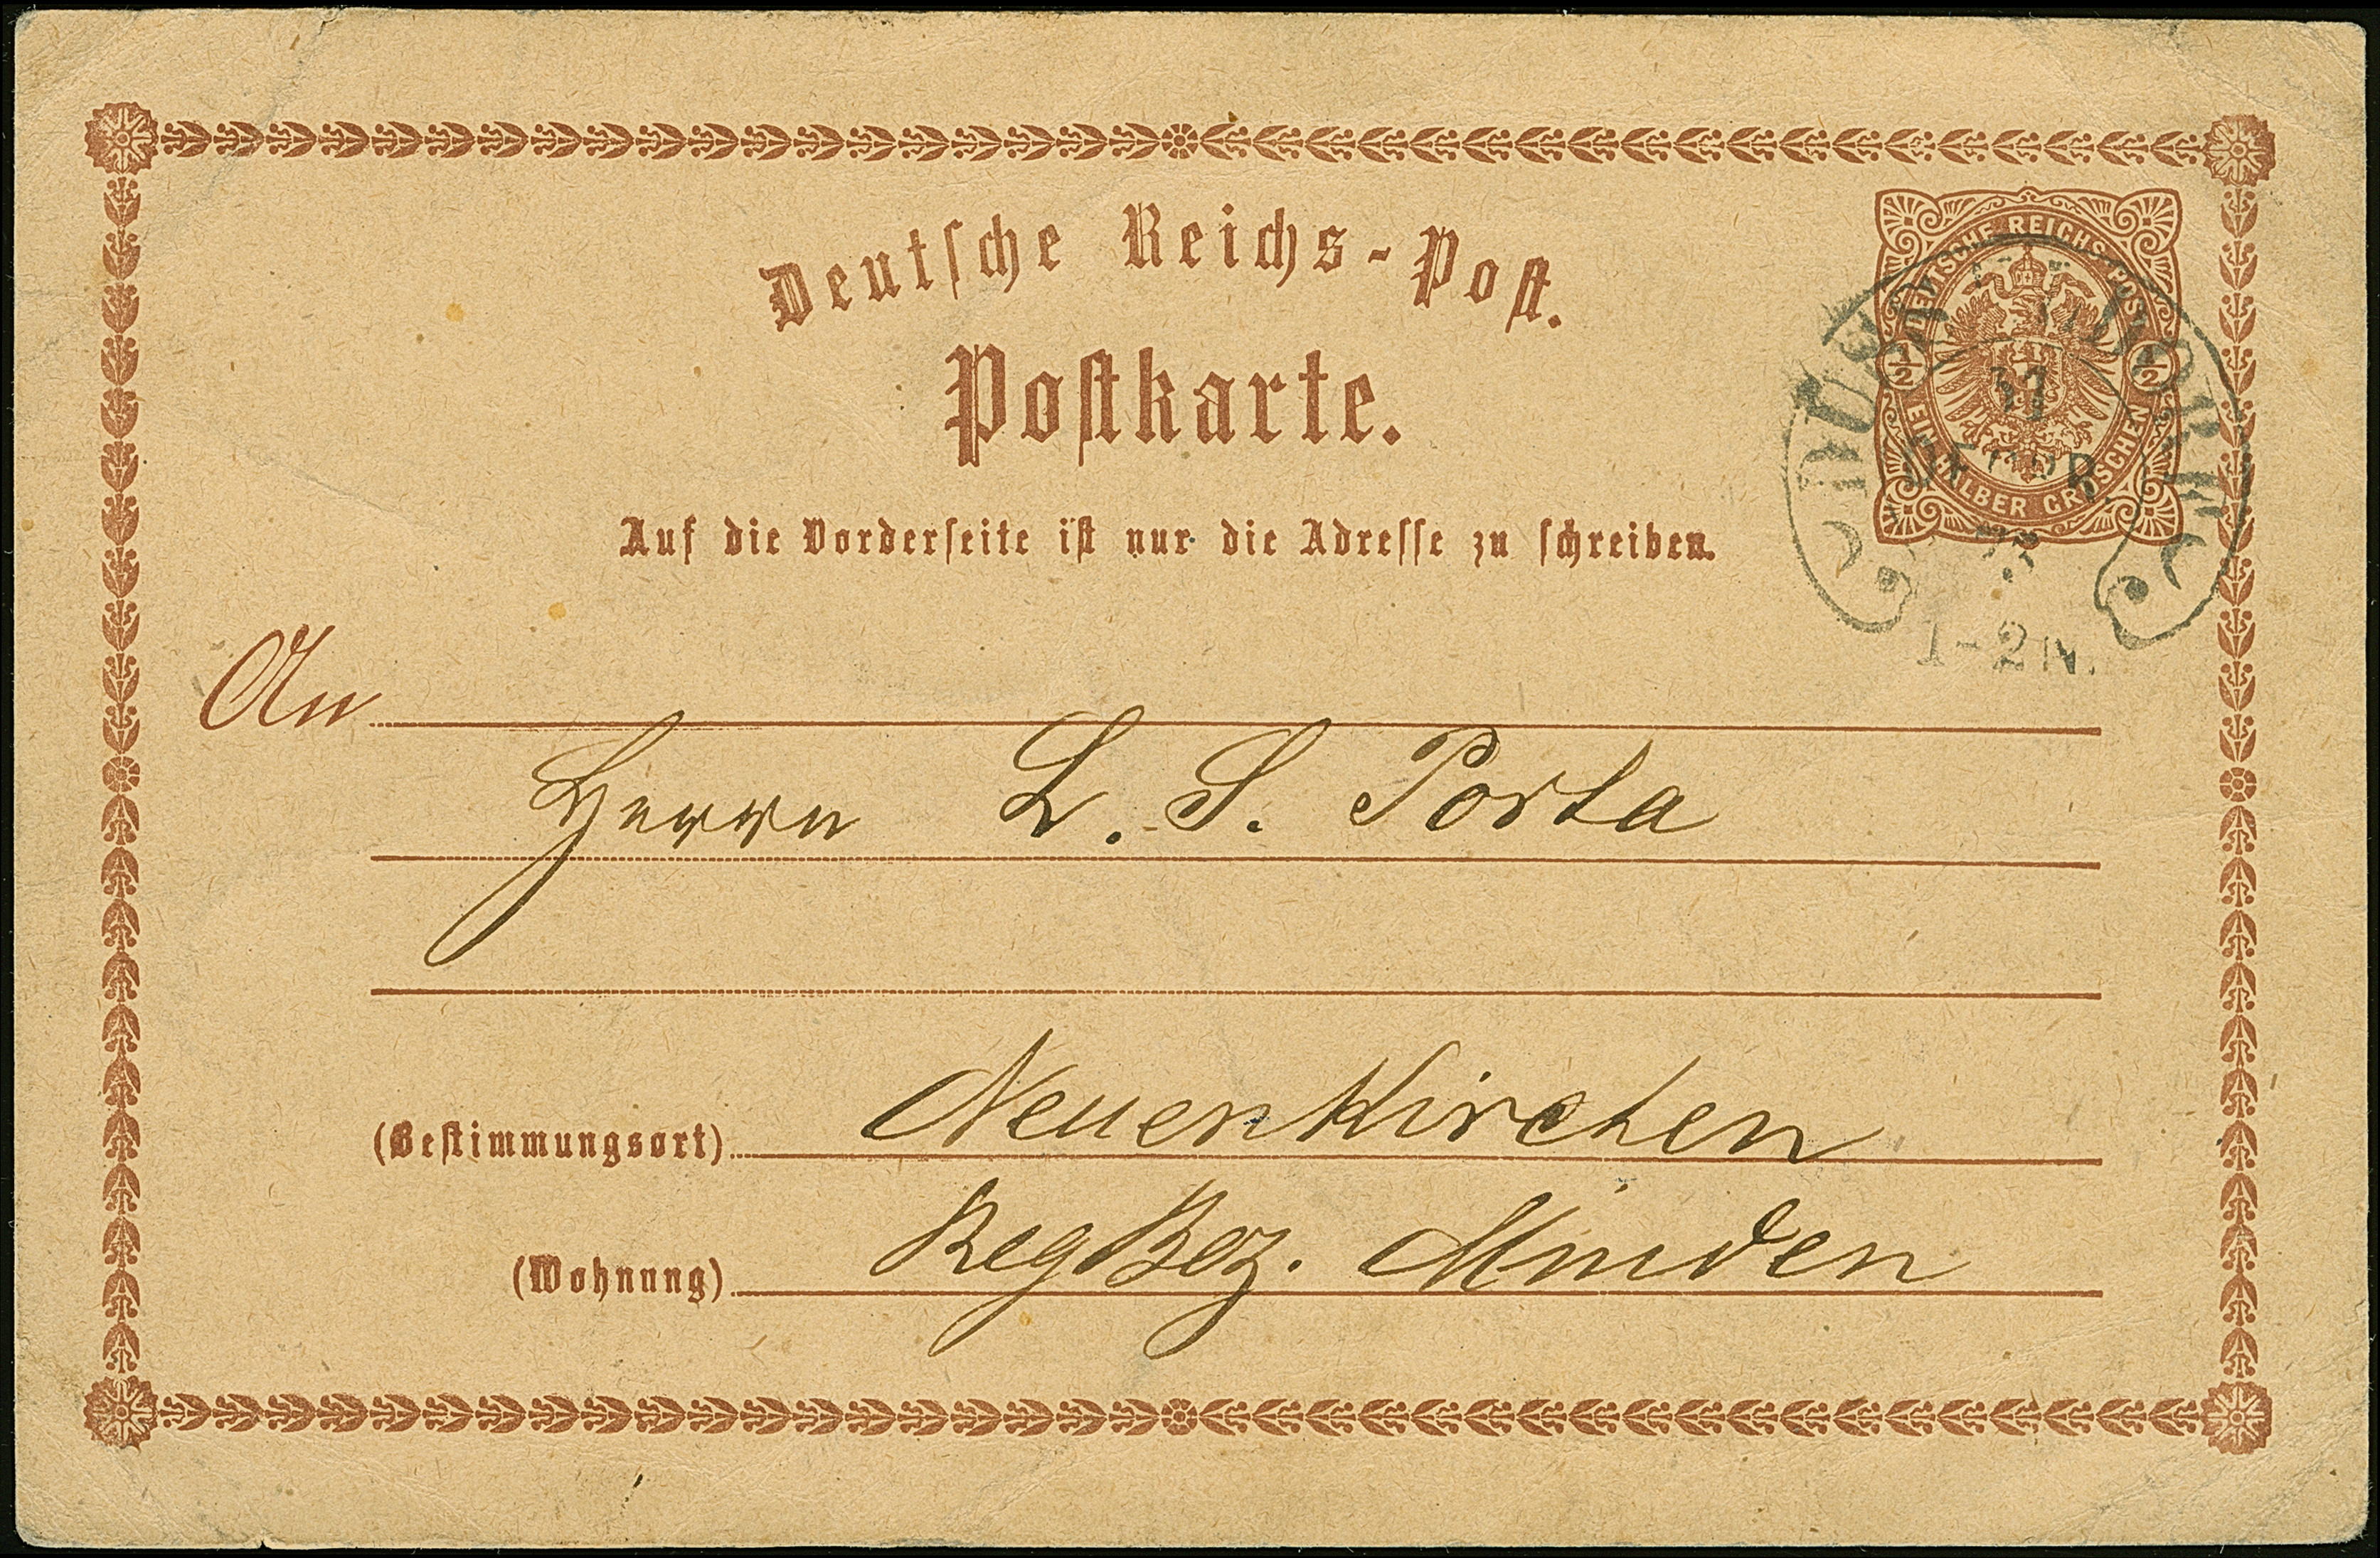 Deutsche Reichs-Post.
Postkarte.
DEUTSCHE REICHS-POST
1/2 1/2
EIN HALBER GROSCHEN
1-2N.
Auf die Vorderseite ist nur die Adresse zu schreiben.
An
Herrn L. S. Porta
Neuenkirchen
(Bestimmungsort)
RegBez. Minden
(Wohnung)